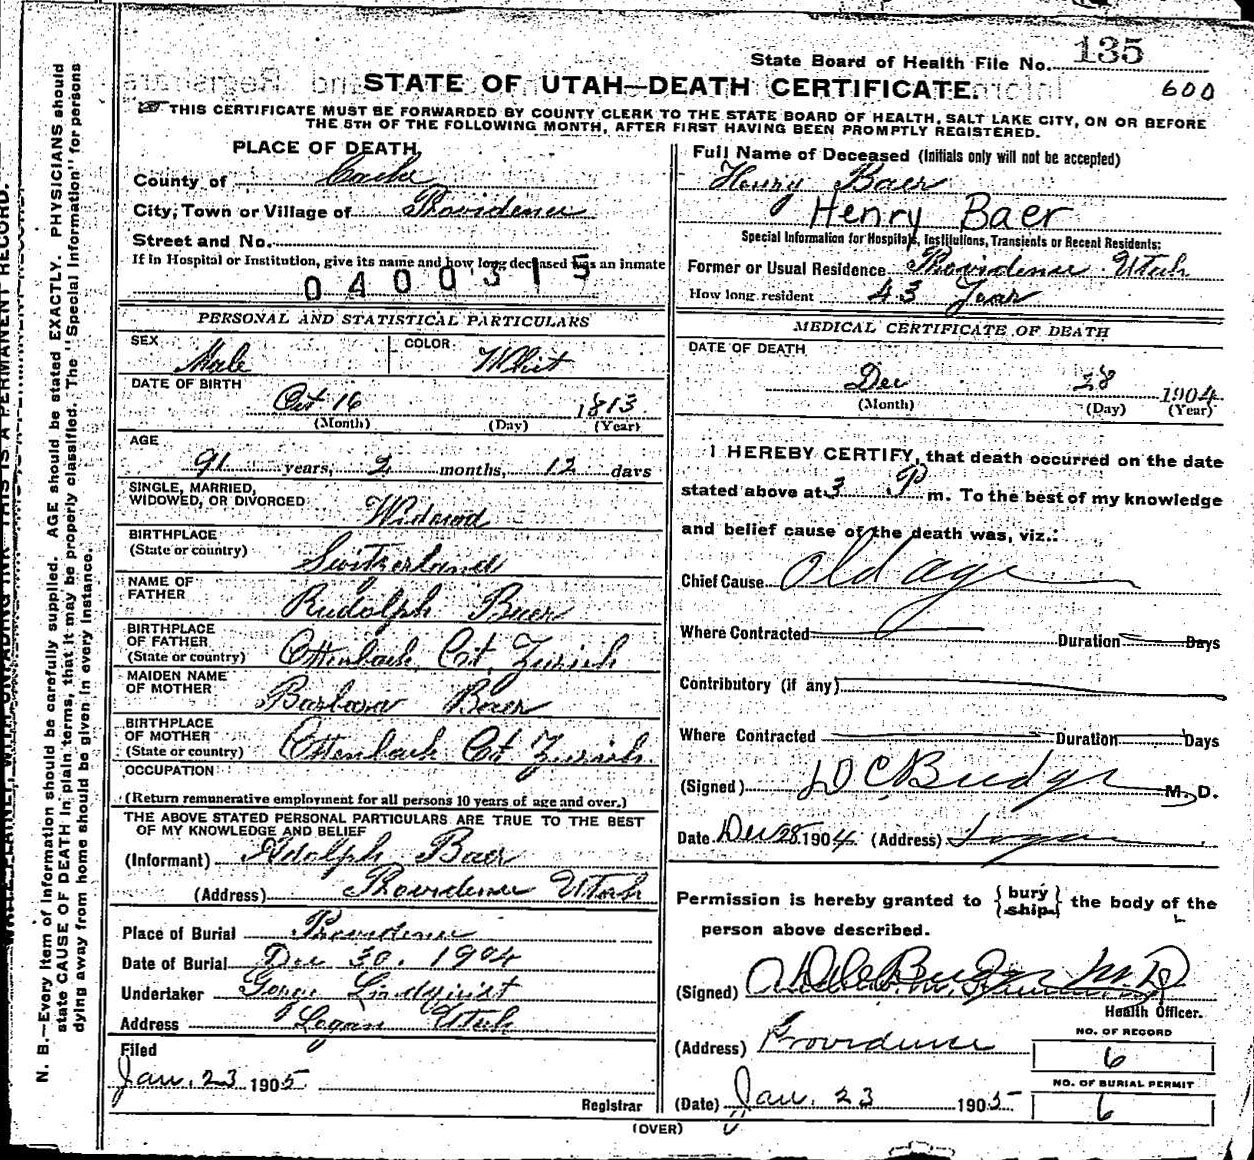 State Board of Health File No. 135
STATE OF UTAH—DEATH CERTIFICATE.
600
THIS CERTIFICATE MUST BE FORWARDED BY COUNTY CLERK TO THE STATE BOARD OF HEALTH, SALT LAKE CITY, ON OR BEFORE
THE 5TH OF THE FOLLOWING MONTH, AFTER FIRST HAVING BEEN PROMPTLY REGISTERED.
PLACE OF DEATH,
County of Cache
City, Town or Village of Providence
Street and No.
If in Hospital or Institution, give its name and how long deceased was an inmate
0400315
PERSONAL AND STATISTICAL PARTICULARS
SEX Male
COLOR Whit
DATE OF BIRTH
Oct 16 1813
(Month) (Day) (Year)
AGE
91 years, 2 months, 12 days
SINGLE, MARRIED,
WIDOWED, OR DIVORCED Widowd
BIRTHPLACE
(State or country) Switzerland
NAME OF
FATHER Rudolph Baer
BIRTHPLACE
OF FATHER
(State or country) Ottenbach Ct. Zurich
MAIDEN NAME
OF MOTHER Barbara Baer
BIRTHPLACE
OF MOTHER
(State or country) Ottenbach Ct Zurich
OCCUPATION
(Return remunerative employment for all persons 10 years of age and over.)
THE ABOVE STATED PERSONAL PARTICULARS ARE TRUE TO THE BEST
OF MY KNOWLEDGE AND BELIEF
(Informant) Adolph Baer
(Address) Providence Utah
Place of Burial Providence
Date of Burial Dec 30. 1904
Undertaker Lindquist
Address Logan Utah
Filed
Jan. 23 1905
Registrar
Full Name of Deceased (Initials only will not be accepted)
Henry Baer
Henry Baer
Special Information for Hospitals, Institutions, Transients or Recent Residents:
Former or Usual Residence Providence Utah
How long resident 43 Year
MEDICAL CERTIFICATE OF DEATH
DATE OF DEATH
Dec 28 1904
(Month) (Day) (Year)
I HEREBY CERTIFY, that death occurred on the date
stated above at 3 P m. To the best of my knowledge
and belief cause of the death was, viz.:
Chief Cause Old age
Where Contracted Duration Days
Contributory (if any)
Where Contracted Duration Days
(Signed) D C Budge M. D.
Date Dec 28 1904. (Address) Logan
Permission is hereby granted to {bury
ship} the body of the
person above described.
(Signed) M. D.
Health Officer.
(Address) Providence
NO. OF RECORD
6
NO. OF BURIAL PERMIT
6
(Date) Jan. 23 1905
(OVER)
N. B.—Every item of information should be carefully supplied. AGE should be stated EXACTLY. PHYSICIANS should
state CAUSE OF DEATH in plain terms, that it may be properly classified. The "Special Information" for persons
dying away from home should be given in every instance.
WRITE PLAINLY, WITH UNFADING INK—THIS IS A PERMANENT RECORD.